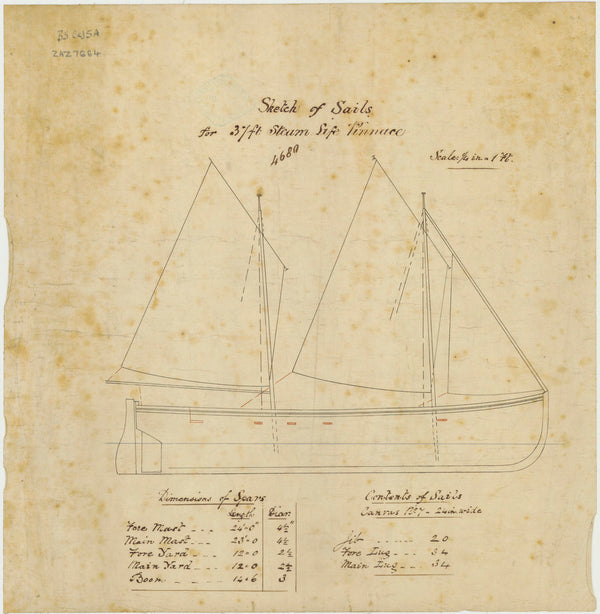 ZAZ7664
Sketch of Sails
For 37ft Steam Life Pinnace
Scale: in = 1 Ft.
Dimensions of Spars
Length Diam
Fore Mast 24-0" 4½"
Main Mast 23-0 4½
Fore Yard 12-0
Main Yard 12-0
Boom 14-6 3
Contents of Sails
Canvas No 7 - 24in wide
Jib 20
Fore Lug 34
Main Lug 34